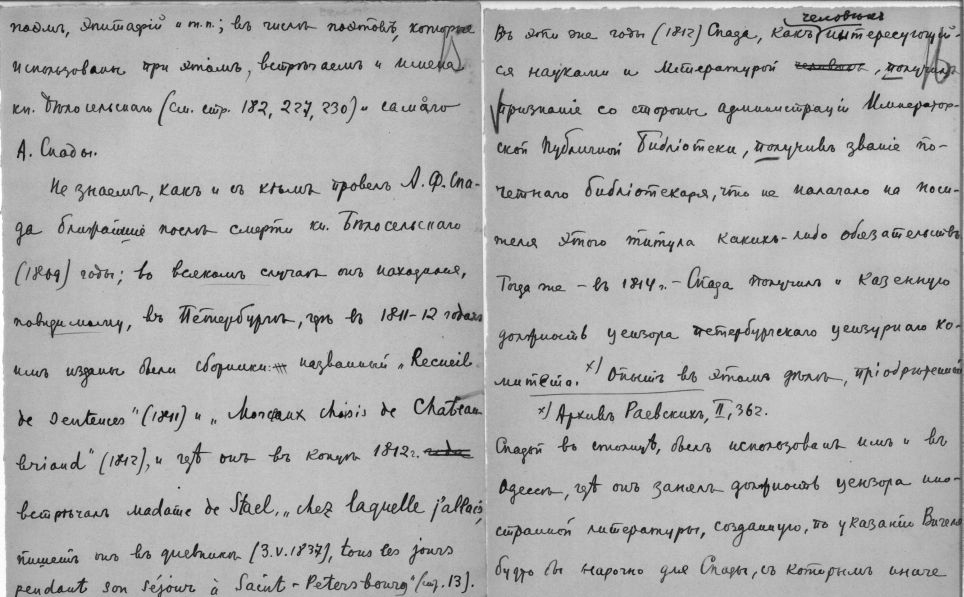 поэмъ, эпитафій и т.п.; въ числѣ поэтовъ, которые
использованы при этомъ, встрѣчаемъ и имена
кн. Бѣлосельскаго (см. стр. 182, 227, 230) и самого
А. Спады.
Не знаемъ, какъ и съ кѣмъ провелъ А. Ф. Спа-
да ближайшіе послѣ смерти кн. Бѣлосельскаго
(1809) годы; во всякомъ случаѣ онъ находился,
повидимому, въ Петербургѣ, гдѣ въ 1811-12 годахъ
имъ изданы были сборники: названный „Recueil
de Sentences" (1811) и „Morceaux choisis de Chateau
briand" (1812), и гдѣ онъ въ концѣ 1812 г. года
встрѣчалъ madame de Stael, „chez laquelle j'allais,
пишетъ онъ въ дневникѣ (3.V.1837), tous les jours
pendant son séjour à Saint-Petersbourg" (стр. 13).
человѣкъ
Въ эти же годы (1812) Спада, какъ интересующій-
ся науками и литературой человѣкъ, получилъ
признаніе со стороны администраціи Император-
ской Публичной Библіотеки, получивъ званіе по-
четнаго библіотекаря, что не налагало на носи-
теля этого титула какихъ-либо обязательствъ
Тогда же – въ 1814 г. – Спада получилъ и казенную
должность цензора петербургскаго цензурнаго ко-
митета. х) Опытъ въ этомъ дѣлѣ, пріобрѣтенный
х) Архивъ Раевскихъ, II, 362.
Спадой въ столицѣ, былъ использованъ имъ и въ
Одессѣ, гдѣ онъ занялъ должность цензора ино-
странной литературы, созданную, по указанію Вигеля
будто бы нарочно для Спады, съ которымъ иначе